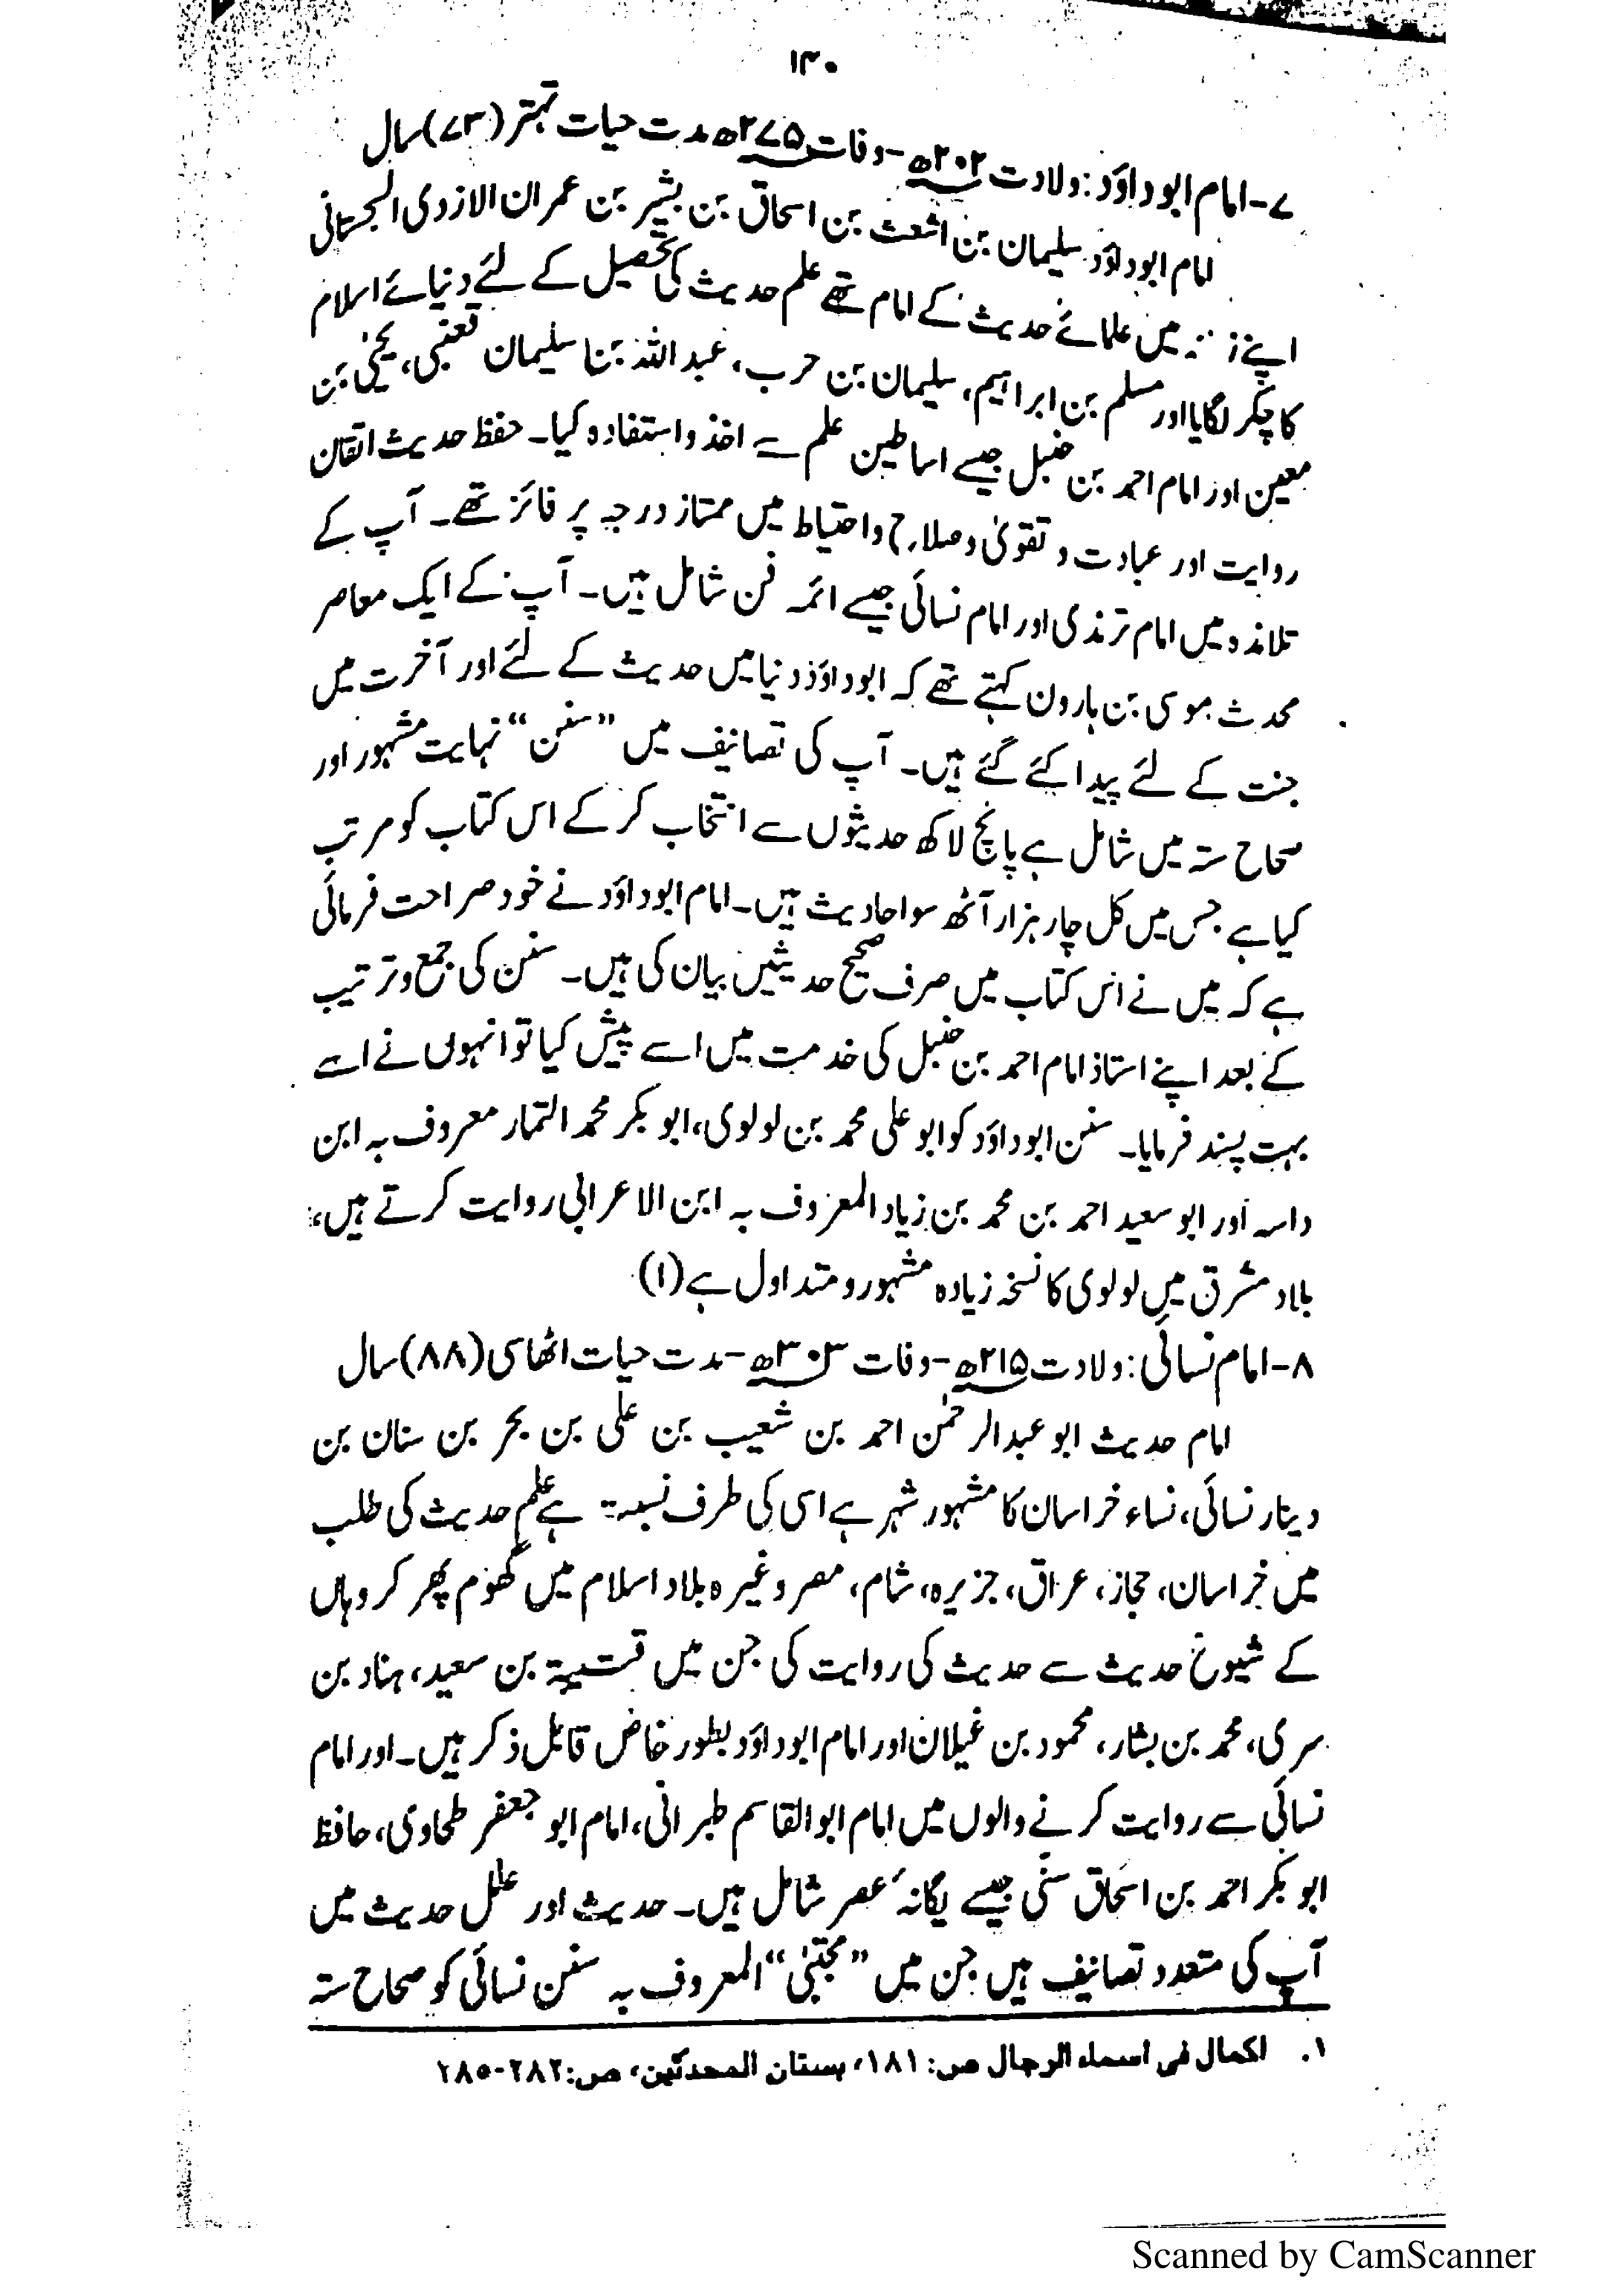 ۱۳۰
۷-امام ابوداؤد: ولادت ۲۰۲ھ-وفات ۲۷۵ھ مدت حیات تہتر (۷۳) سال
امام ابوداؤد سلیمان بن اشعث بن اسحاق بن بشیر بن عمران الازدی السجستانی
اپنے میں علمائے حدیث کے امام تھے علم حدیث کی تحصیل کے لئے دنیائے اسلام
کا چکر لگایا اور مسلم بن ابراہیم، سلیمان بن حرب، عبداللہ بنا سلیمان قعنبی، یحیٰی بن
معین اور امام احمد بن حنبل جیسے اساطین علم سے اخذ و استفادہ کیا۔ حفظ حدیث اتقان
روایت اور عبادت و تقویٰ و صلاح و احتیاط میں ممتاز درجہ پر فائز تھے۔ آپ کے
تلامذہ میں امام ترمذی اور امام نسائی جیسے ائمہ فن شامل ہیں۔ آپ کے ایک معاصر
محدث موسی بن ہارون کہتے تھے کہ ابوداؤد دنیا میں حدیث کے لئے اور آخرت میں
جنت کے لئے پیدا کئے گئے ہیں۔ آپ کی تصانیف میں ”سنن“ نہایت مشہور اور
صحاح ستہ میں شامل ہے پانچ لاکھ حدیثوں سے انتخاب کر کے اس کتاب کو مرتب
کیا ہے جس میں کل چار ہزار آٹھ سو احادیث ہیں۔ امام ابوداؤد نے خود صراحت فرمائی
ہے کہ میں نے اس کتاب میں صرف صحیح حدیثیں بیان کی ہیں۔ سنن کی جمع و ترتیب
کے بعد اپنے استاذ امام احمد بن حنبل کی خدمت میں اسے پیش کیا تو انہوں نے اسے
بہت پسند فرمایا۔ سنن ابوداؤد کو ابو علی محمد بن لولوی، ابو بکر محمد التمار معروف بہ ابن
داسہ اور ابو سعید احمد بن محمد بن زیاد المعروف بہ ابن الاعرابی روایت کرتے ہیں،
بلاد مشرق میں لولوی کا نسخہ زیادہ مشہور و متداول ہے (۱)
۸-امام نسائی: ولادت ۲۱۵ھ-وفات ۳۰۳ھ-مدت حیات اٹھاسی (۸۸) سال
امام حدیث ابو عبدالرحمٰن احمد بن شعیب بن علی بن بحر بن سنان بن
دینار نسائی، نساء خراسان کا مشہور شہر ہے اسی کی طرف نسبت ہے علم حدیث کی طلب
میں خراسان، حجاز، عراق، جزیرہ، شام، مصر وغیرہ بلاد اسلام میں گھوم پھر کر وہاں
کے شیوخ حدیث سے حدیث کی روایت کی جن میں قتیبۃ بن سعید، ہناد بن
سری، محمد بن بشار، محمود بن غیلان اور امام ابوداؤد بطور خاص قابل ذکر ہیں۔ اور امام
نسائی سے روایت کرنے والوں میں امام ابوالقاسم طبرانی، امام ابو جعفر طحاوی، حافظ
ابو بکر احمد بن اسحاق سنی جیسے یگانۂ عصر شامل ہیں۔ حدیث اور علل حدیث میں
آپ کی متعدد تصانیف ہیں جن میں ”مجتبیٰ“ المعروف بہ سنن نسائی کو صحاح ستہ
۱. اکمال فی اسماء الرجال ص: ۱۸۱، بستان المحدثین، ص: ۲۸۲-۲۸۵
Scanned by CamScanner